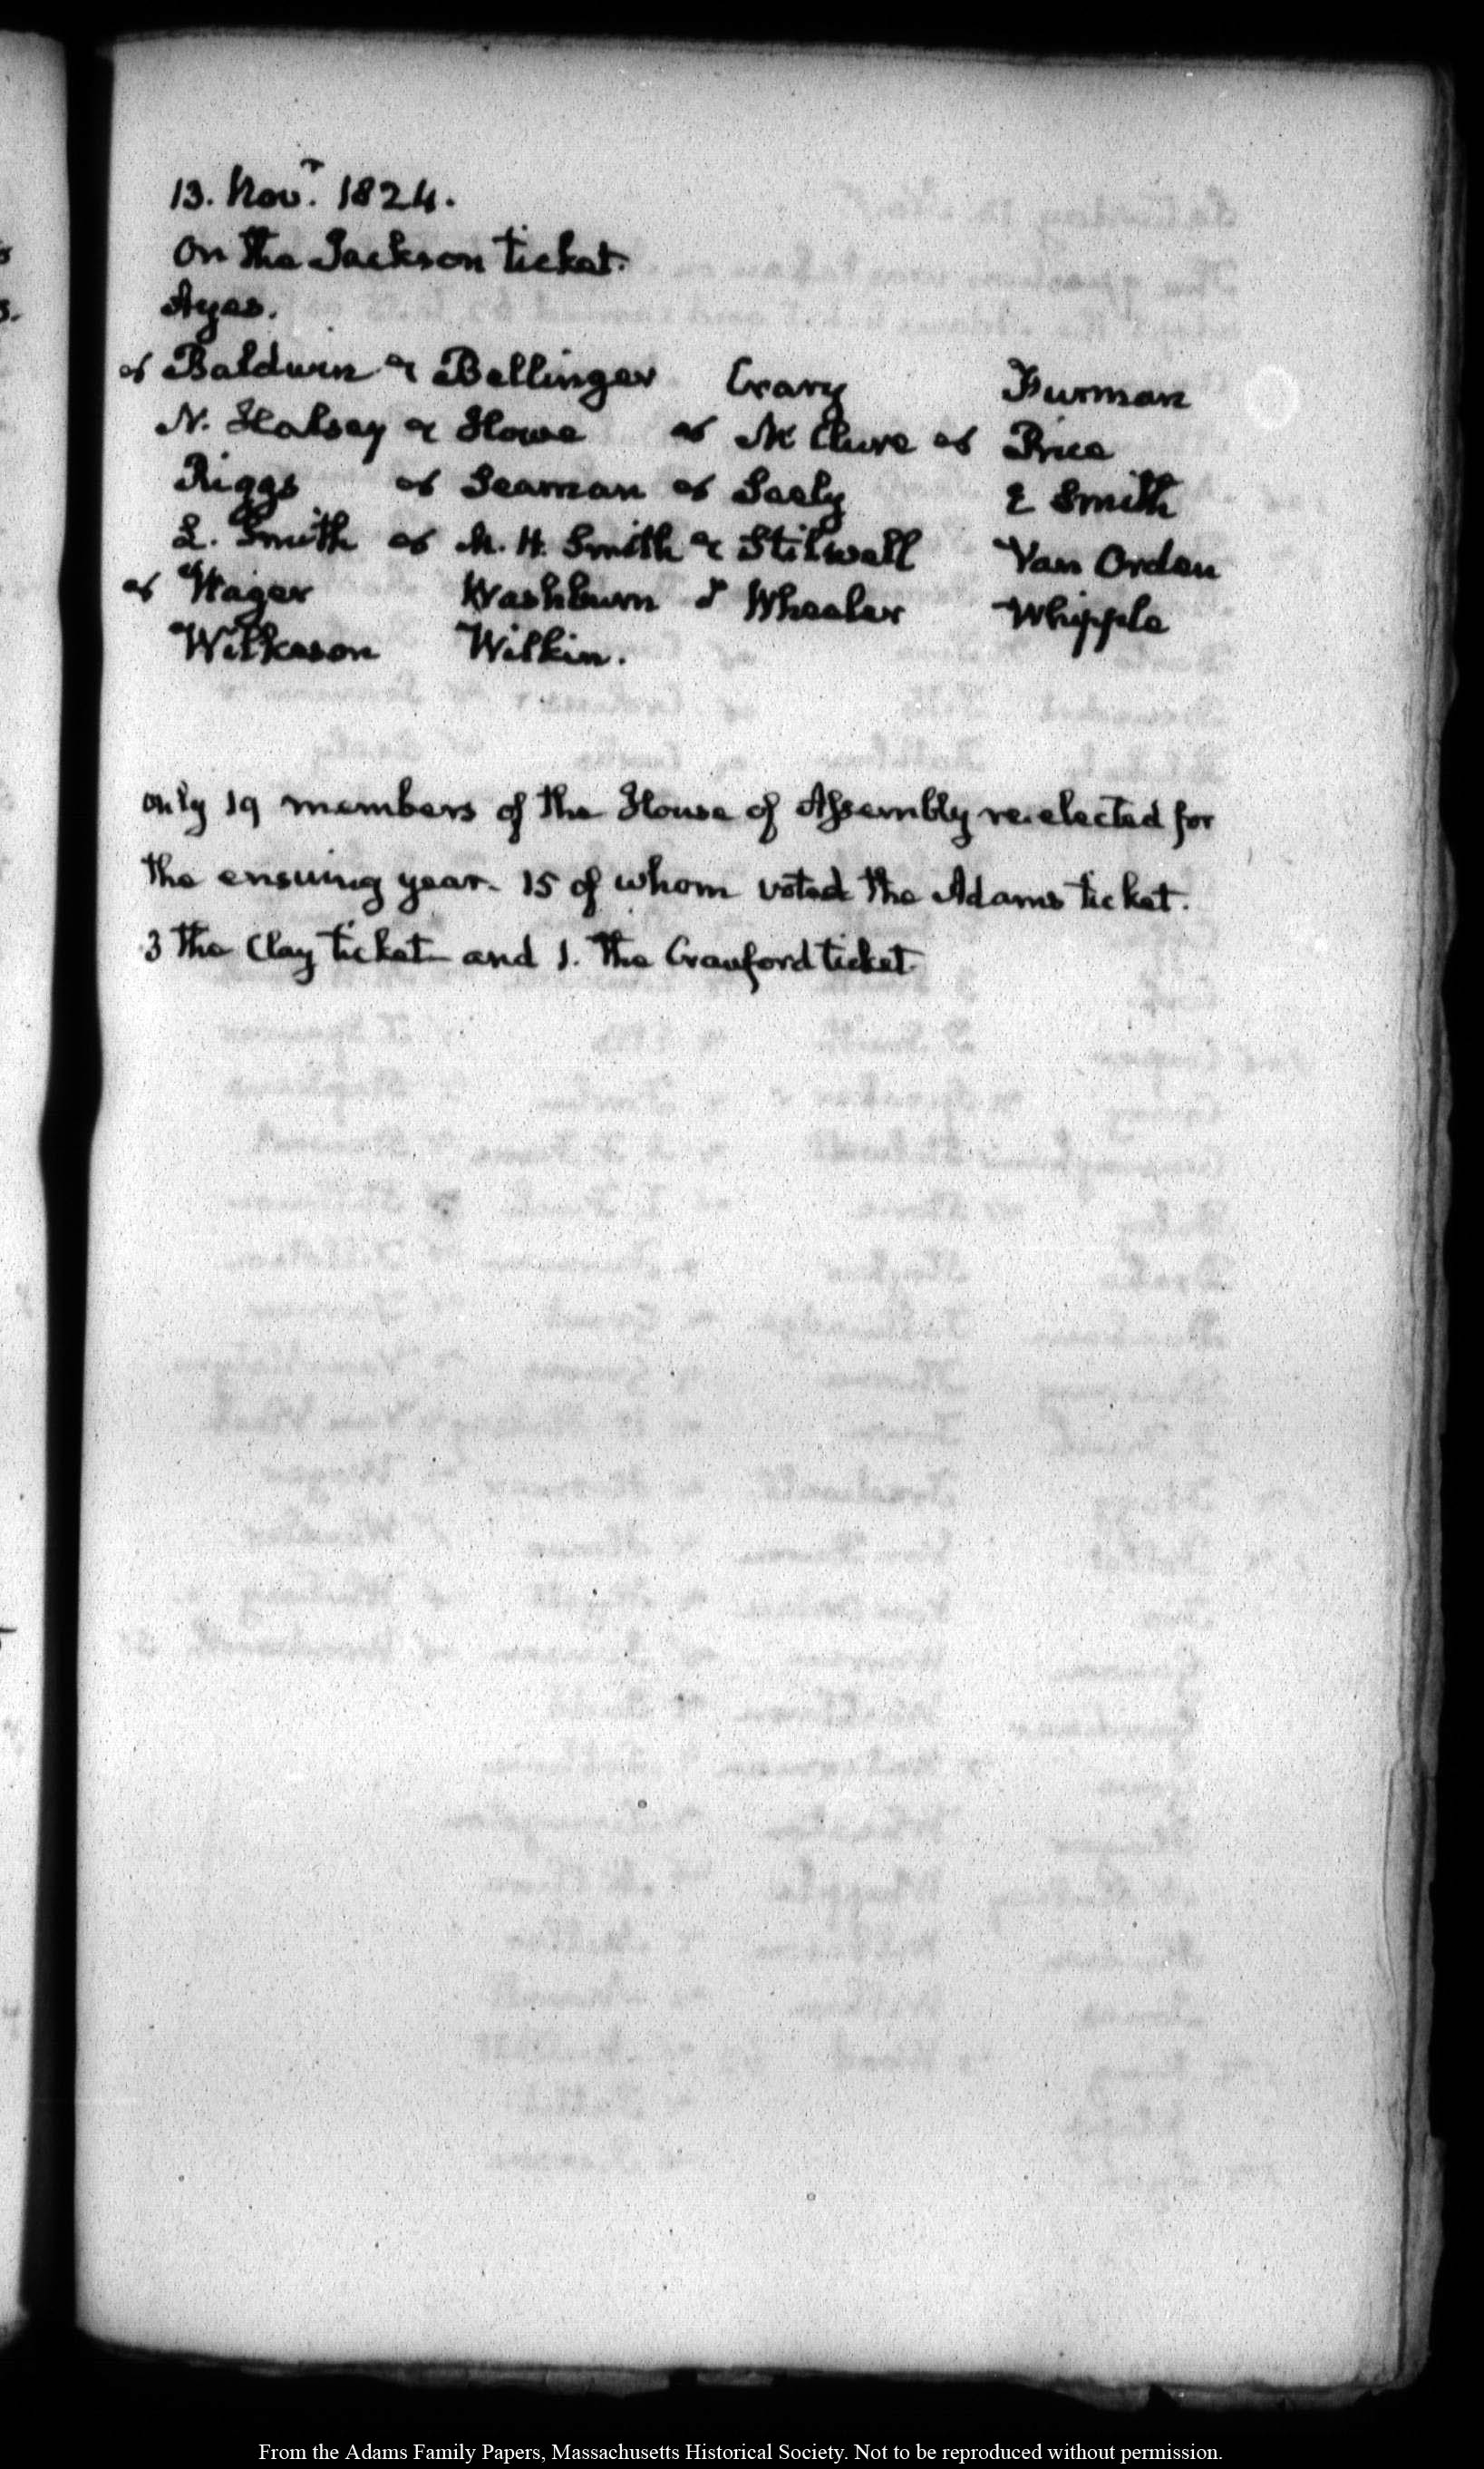 13. Nov.r 1824.
On the Jackson ticket.
Ayes.
Baldwin Bellinger Crary Furman
N. Halsey Howe Mc Clure Price
Riggs Seaman Seely E Smith
L. Smith M. H. Smith Stilwell Van Orden
Wager Washburn Wheeler Whipple
Wilkeson Wilkin.
only 19 members of the House of Assembly re.elected for
the ensuing year- 15 of whom voted the Adams ticket.
3 the Clay ticket- and 1. the Crauford ticket
From the Adams Family Papers, Massachusetts Historical Society. Not to be reproduced without permission.